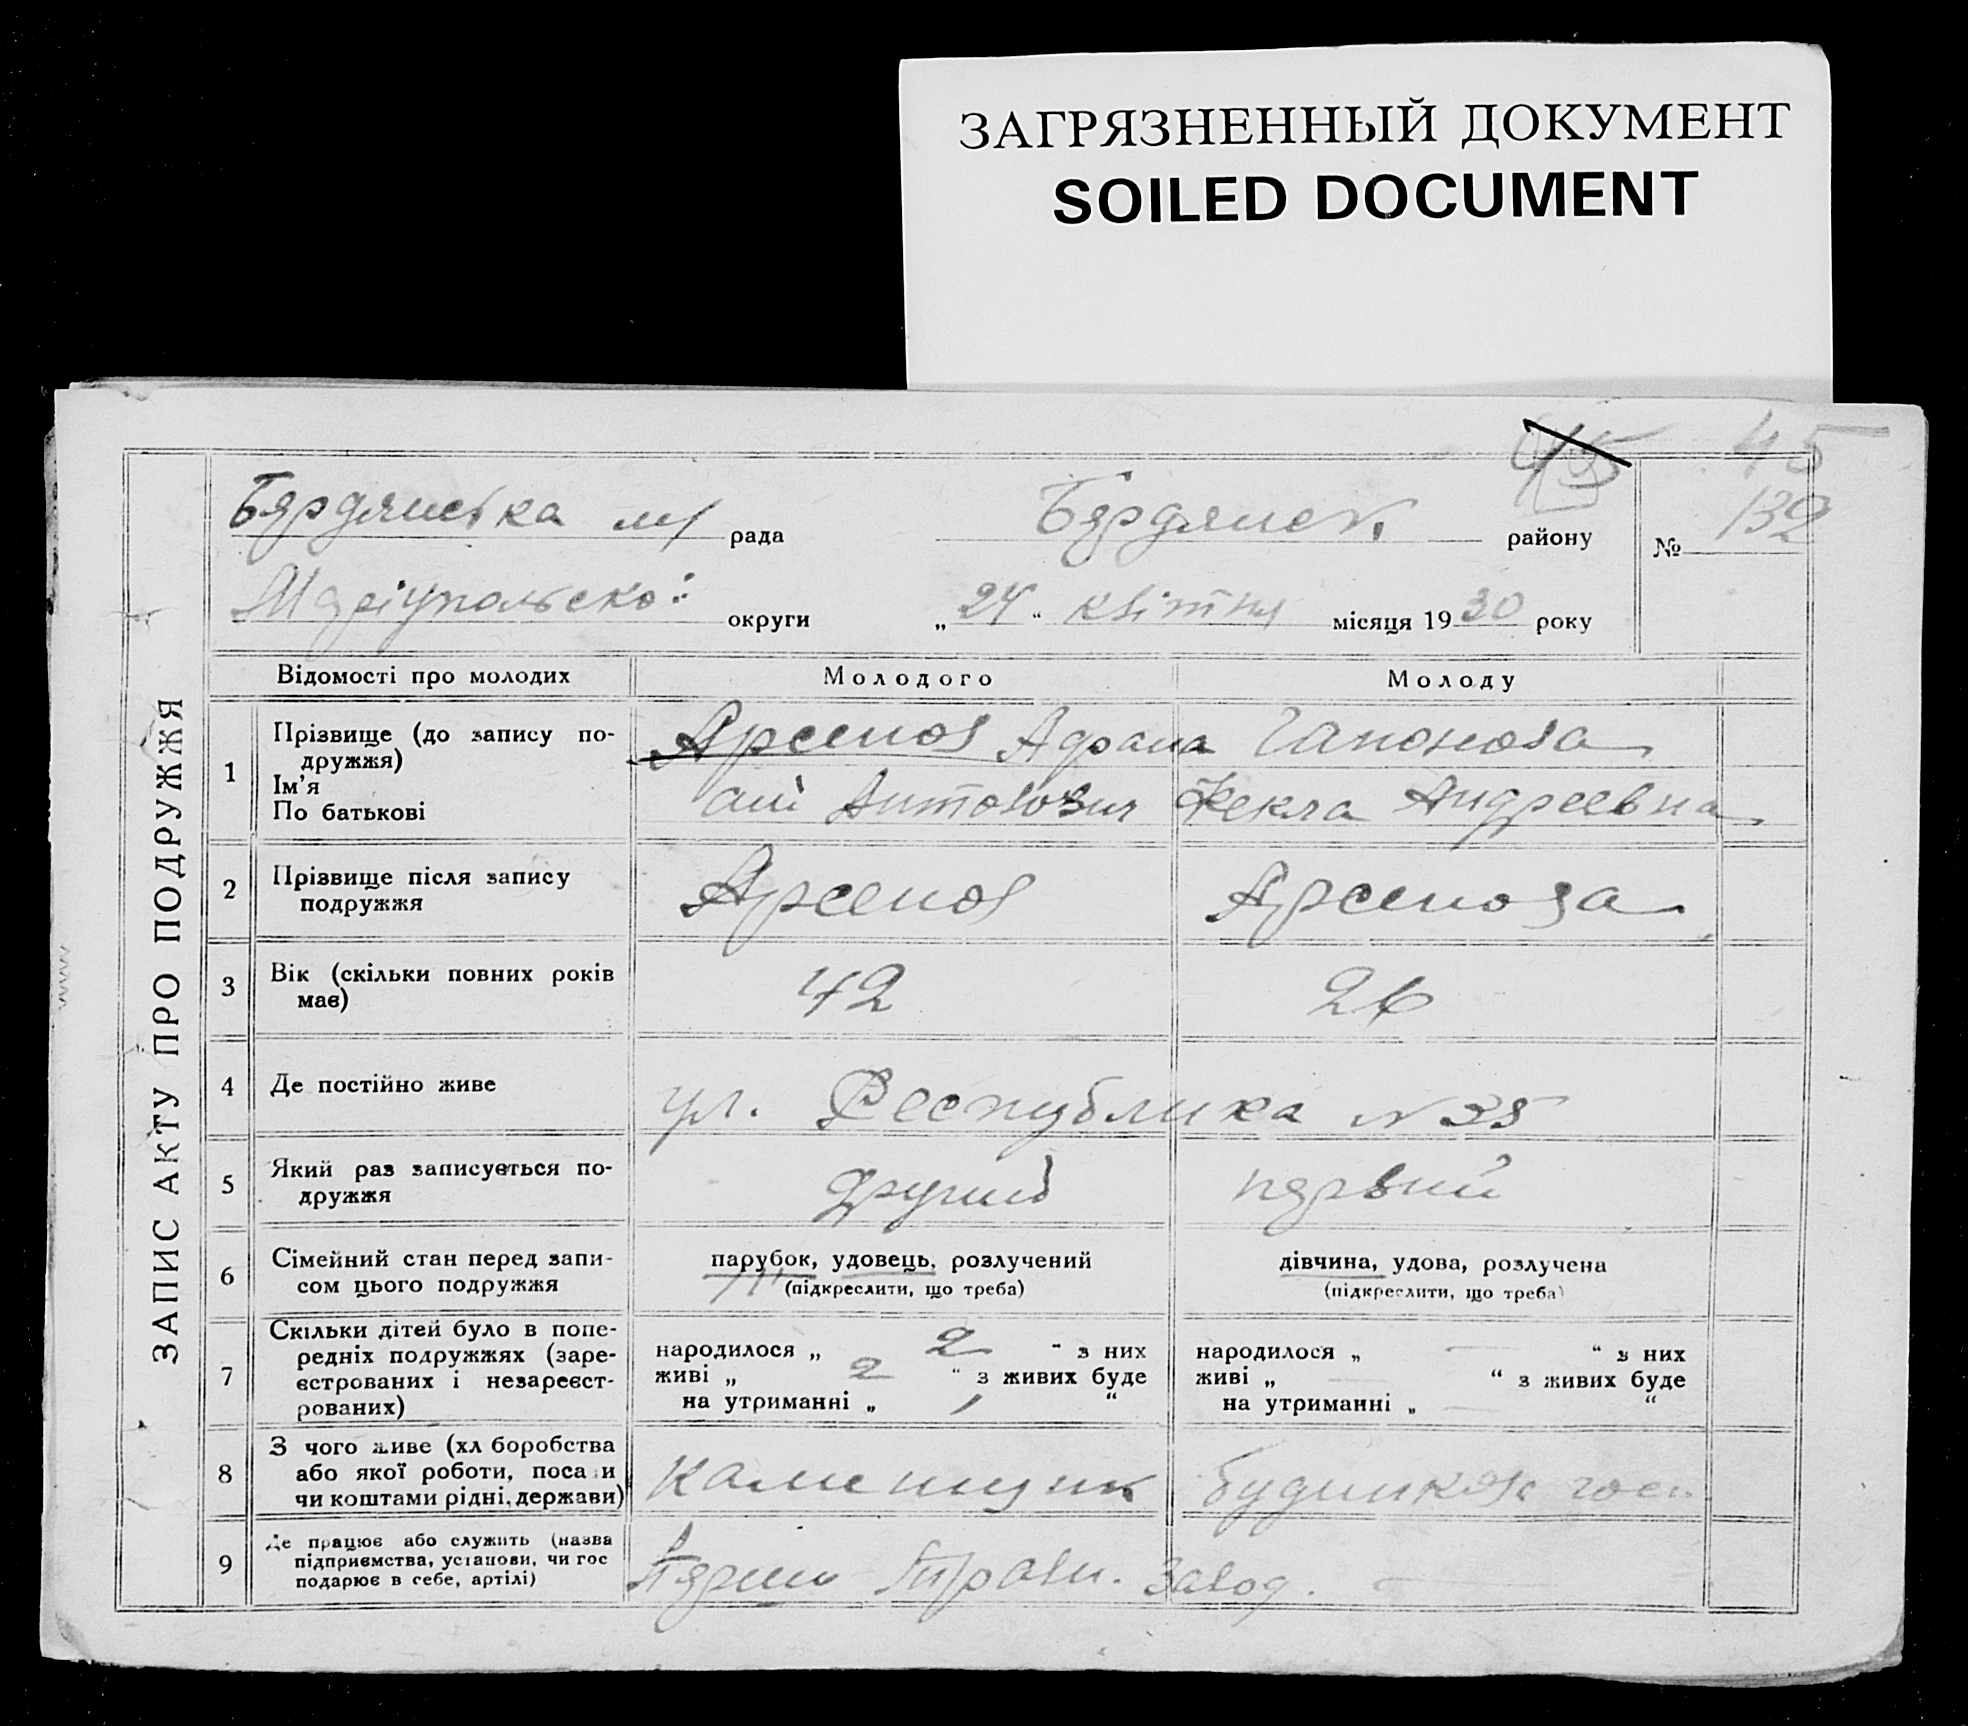 ЗАГРЯЗНЕННЫЙ ДОКУМЕНТ
SOILED DOCUMENT
45 45
Бердянська м/ рада Бердянськ. району № 132
Маріупольської округи „24“ квітня місяця 1930 року
ЗАПИС АКТУ ПРО ПОДРУЖЖЯ
Відомості про молодих Молодого Молоду
1 Прізвище (до запису по-
дружжя)
Ім'я
По батькові
Арсенов Гапонова
Антонович Фекла Андреевна
2 Прізвище після запису
подружжя
Арсенов Арсенова
3 Вік (скільки повних років
має)
42 26
4 Де постійно живе
ул. Республика N 35
5 Який раз записується по-
дружжя
другий первий
6 Сімейний стан перед запи-
сом цього подружжя
парубок, удовець, розлучений
(підкреслити, що треба)
дівчина, удова, розлучена
(підкреслити, що треба)
7 Скільки дітей було в попе-
редніх подружжях (заре-
єстрованих і незареєст-
рованих)
народилося „ 2 “ з них
живі „ 2 “ з живих буде
на утриманні „ “
народилося „ — “ з них
живі „ — “ з живих буде
на утриманні „ — “
8 З чого живе (хліборобства
або якої роботи, посади
чи коштами рідні, держави)
Каменщик
9 Де працює або служить (назва
підприємства, установи, чи гос
подарює в себе, артілі)
завод. —